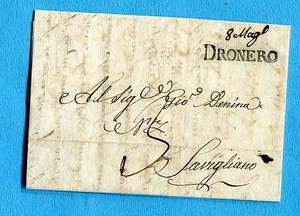 8 Magg
DRONERO
Al Sig.r Gio. Denina
5
Savigliano